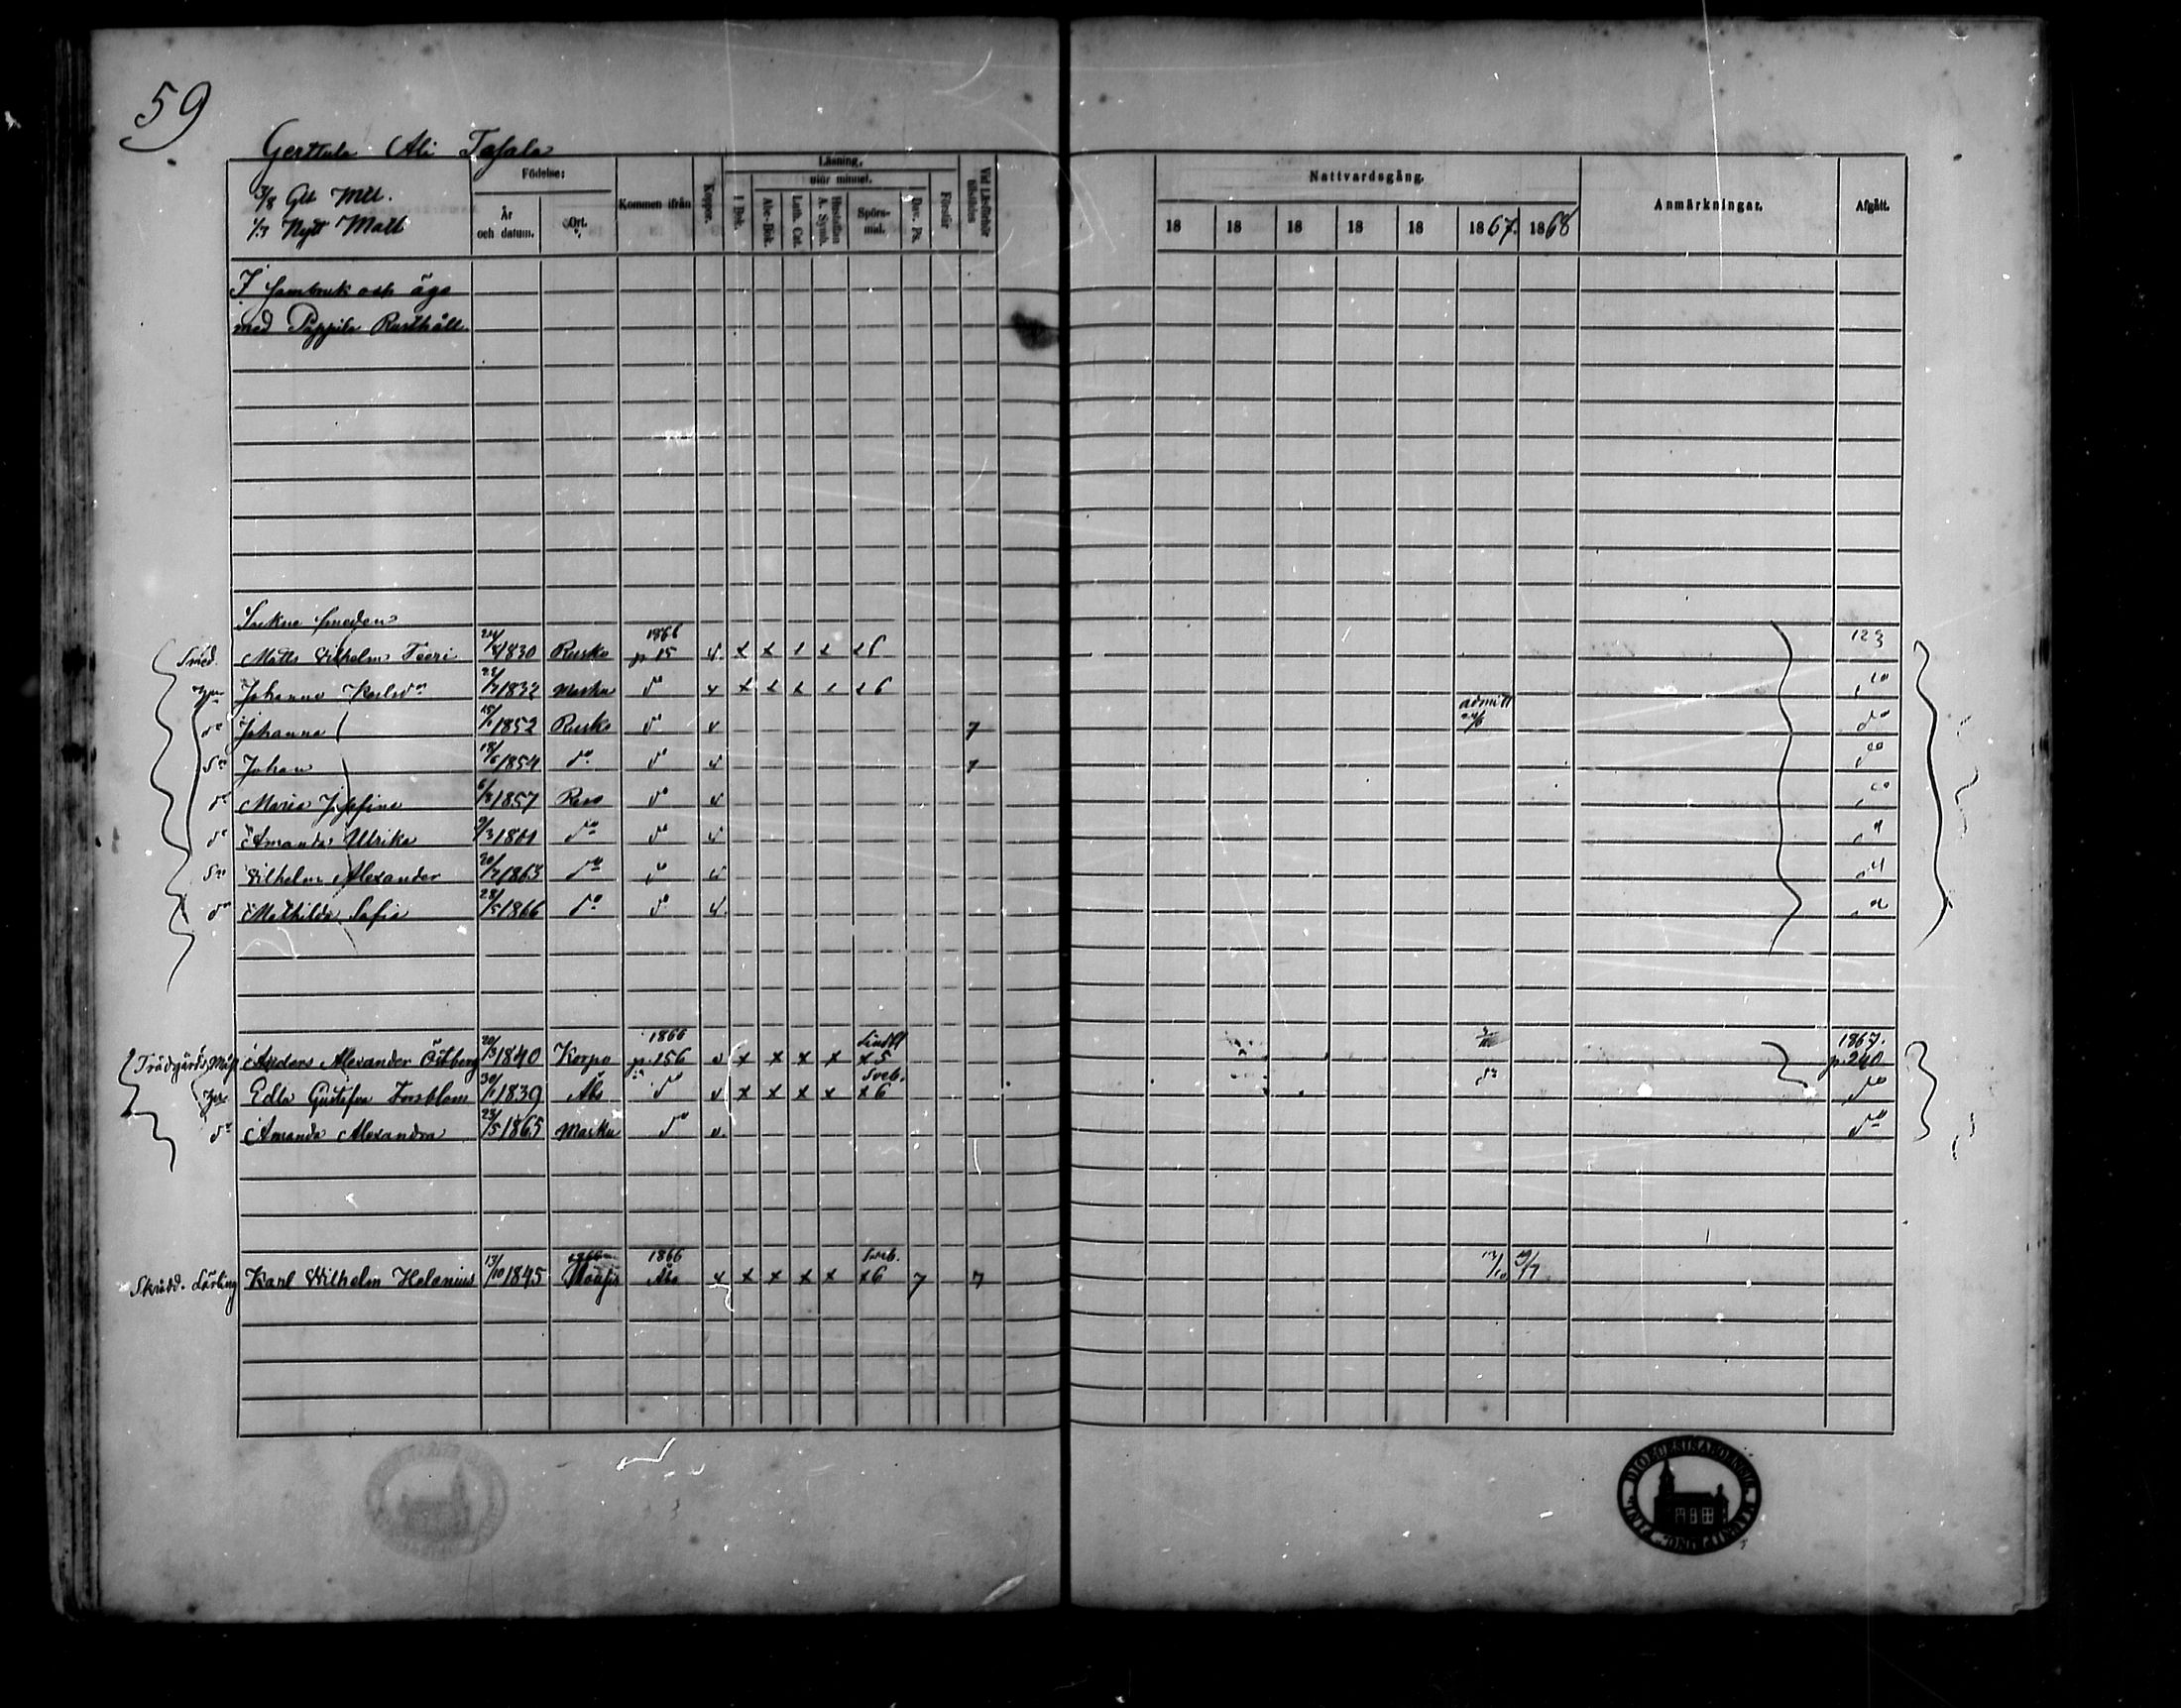 59
Gerttula Ali Tasala
3/8 Glt Mtl.
1/3 Nytt Matl
Födelse:
År och datum.
Ort.
Kommen ifrån
Koppor.
Läsning,
utur minnet.
I Bok.
Abc-Bok.
Luth. Cat.
Hustaflan A. Symb.
Spörs-mål.
Dav. Ps.
Förstår
Vid Läsförhör tillstädes
Nattvardsgång.
18 18 18 18 18 1867. 1868
Anmärkningar.
Afgått.
I sambruk och ägo
med Pappila Rusthåll.
Sockne smeden
Smed. Matts Vilhelm Feeri 24/4 1830 Rusko 1866 p 15 v. x x x x x 6 123
Hu Johanna Karlsdr 1832 Masku do v x x x x x 6 do
dr Johanna 15/1 1852 Rusko do v 7 admitt 24/6 do
Sn Johan 18/6 1854 do do v 7 do
dr Maria Josefina 6/8 1857 Reso do v do
dr Amanda Ulrika 9/3 1861 do do v do
Sn Vilhelm Alexander 20/7 1863 do do v do
dr Mathilda Sofia 28/5 1866 do do v. do
Trädgårds Mäst Anders Alexander Östberg 20/3 1840 Korpo 1866 p. 156 v x x x x Lindbl x 5 1867. p. 240
Hu Edla Gustafva Forsblom 30/1 1839 Åbo do v x x x x Sveb. x 6 do do
dr Amanda Alexandra 23/5 1865 Masku do v. do
Skrädd. Lärling Karl Vilhelm Helenius 13/10 1845 1866 Åbo v x x x x Sveb. x 6 7 7 13/10